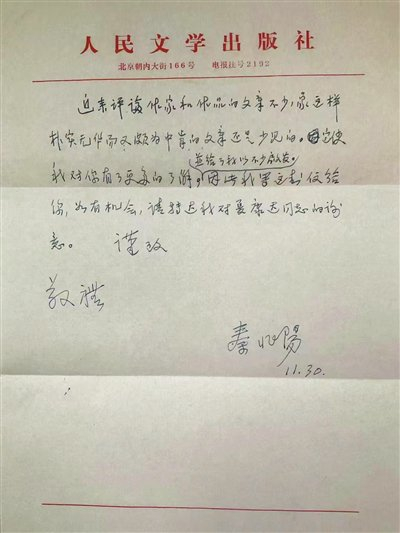 人民文学出版社
北京朝内大街166号 电报挂号2192
近来评议作家和作品的文章不少,象这样
朴实无华而又颇为中肯的文章还是少见的。它使
并给了我以不少启发。
我对你有了更多的了解,因此我要写封信给
你,如有机会,请转达我对夏康达同志的谢
意。 谨致
敬礼
秦兆阳
11.30.